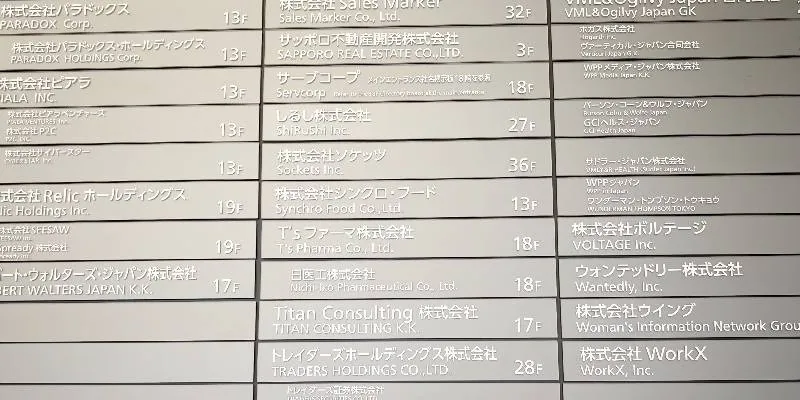 株式会社パラドックス
PARADOX Corp.
13F
株式会社パラドックス・ホールディングス
PARADOX HOLDINGS Corp.
13F
株式会社ピアラ
PIALA, INC.
13F
株式会社ピアラベンチャーズ
PIALA VENTURES INC.
株式会社 P2C
P2C, INC.
13F
株式会社サイバースター
13F
株式会社 Relic ホールディングス
lic Holdings Inc.
19F
株式会社 SEESAW
SEESAW Inc.
Spready 株式会社
Spready Inc.
19F
バート・ウォルターズ・ジャパン株式会社
BERT WALTERS JAPAN K.K.
17F
株式会社 Sales Marker
Sales Marker Co., Ltd.
32F
サッポロ不動産開発株式会社
SAPPORO REAL ESTATE CO.,LTD.
3F
サーブコープ メインエントランス社名掲示板18階を参照
Servcorp
18F
しるし株式会社
ShiRuShi Inc.
27F
株式会社ソケッツ
Sockets Inc.
36F
株式会社シンクロ・フード
Synchro Food Co.,Ltd.
13F
T's ファーマ株式会社
T's Pharma Co., Ltd.
18F
日医工株式会社
Nichi-Iko Pharmaceutical Co., Ltd.
18F
Titan Consulting 株式会社
TITAN CONSULTING K.K.
17F
トレイダーズホールディングス株式会社
TRADERS HOLDINGS CO.,LTD.
28F
トレイダーズ証券株式会社
TRADERS SECURITIES CO.,LTD.
VML&Ogilvy Japan GK
ホガス株式会社
Hogarth Inc.
ヴァーティカル・ジャパン合同会社
Verticurl Japan G.K.
WPPメディア・ジャパン株式会社
WPP Media Japan K.K.
バーソン・コーン&ウルフ・ジャパン
Burson Cohn & Wolfe Japan
GCIヘルス・ジャパン
GCI Health Japan
サドラー・ジャパン株式会社
VMLY&R HEALTH (Sudler Japan Inc.)
WPPジャパン
WPP in Japan
ワンダーマン・トンプソン・トウキョウ
WUNDERMAN THOMPSON TOKYO
株式会社ボルテージ
VOLTAGE Inc.
ウォンテッドリー株式会社
Wantedly, Inc.
株式会社ウイング
Woman's Information Network Grou
株式会社 WorkX
WorkX, Inc.